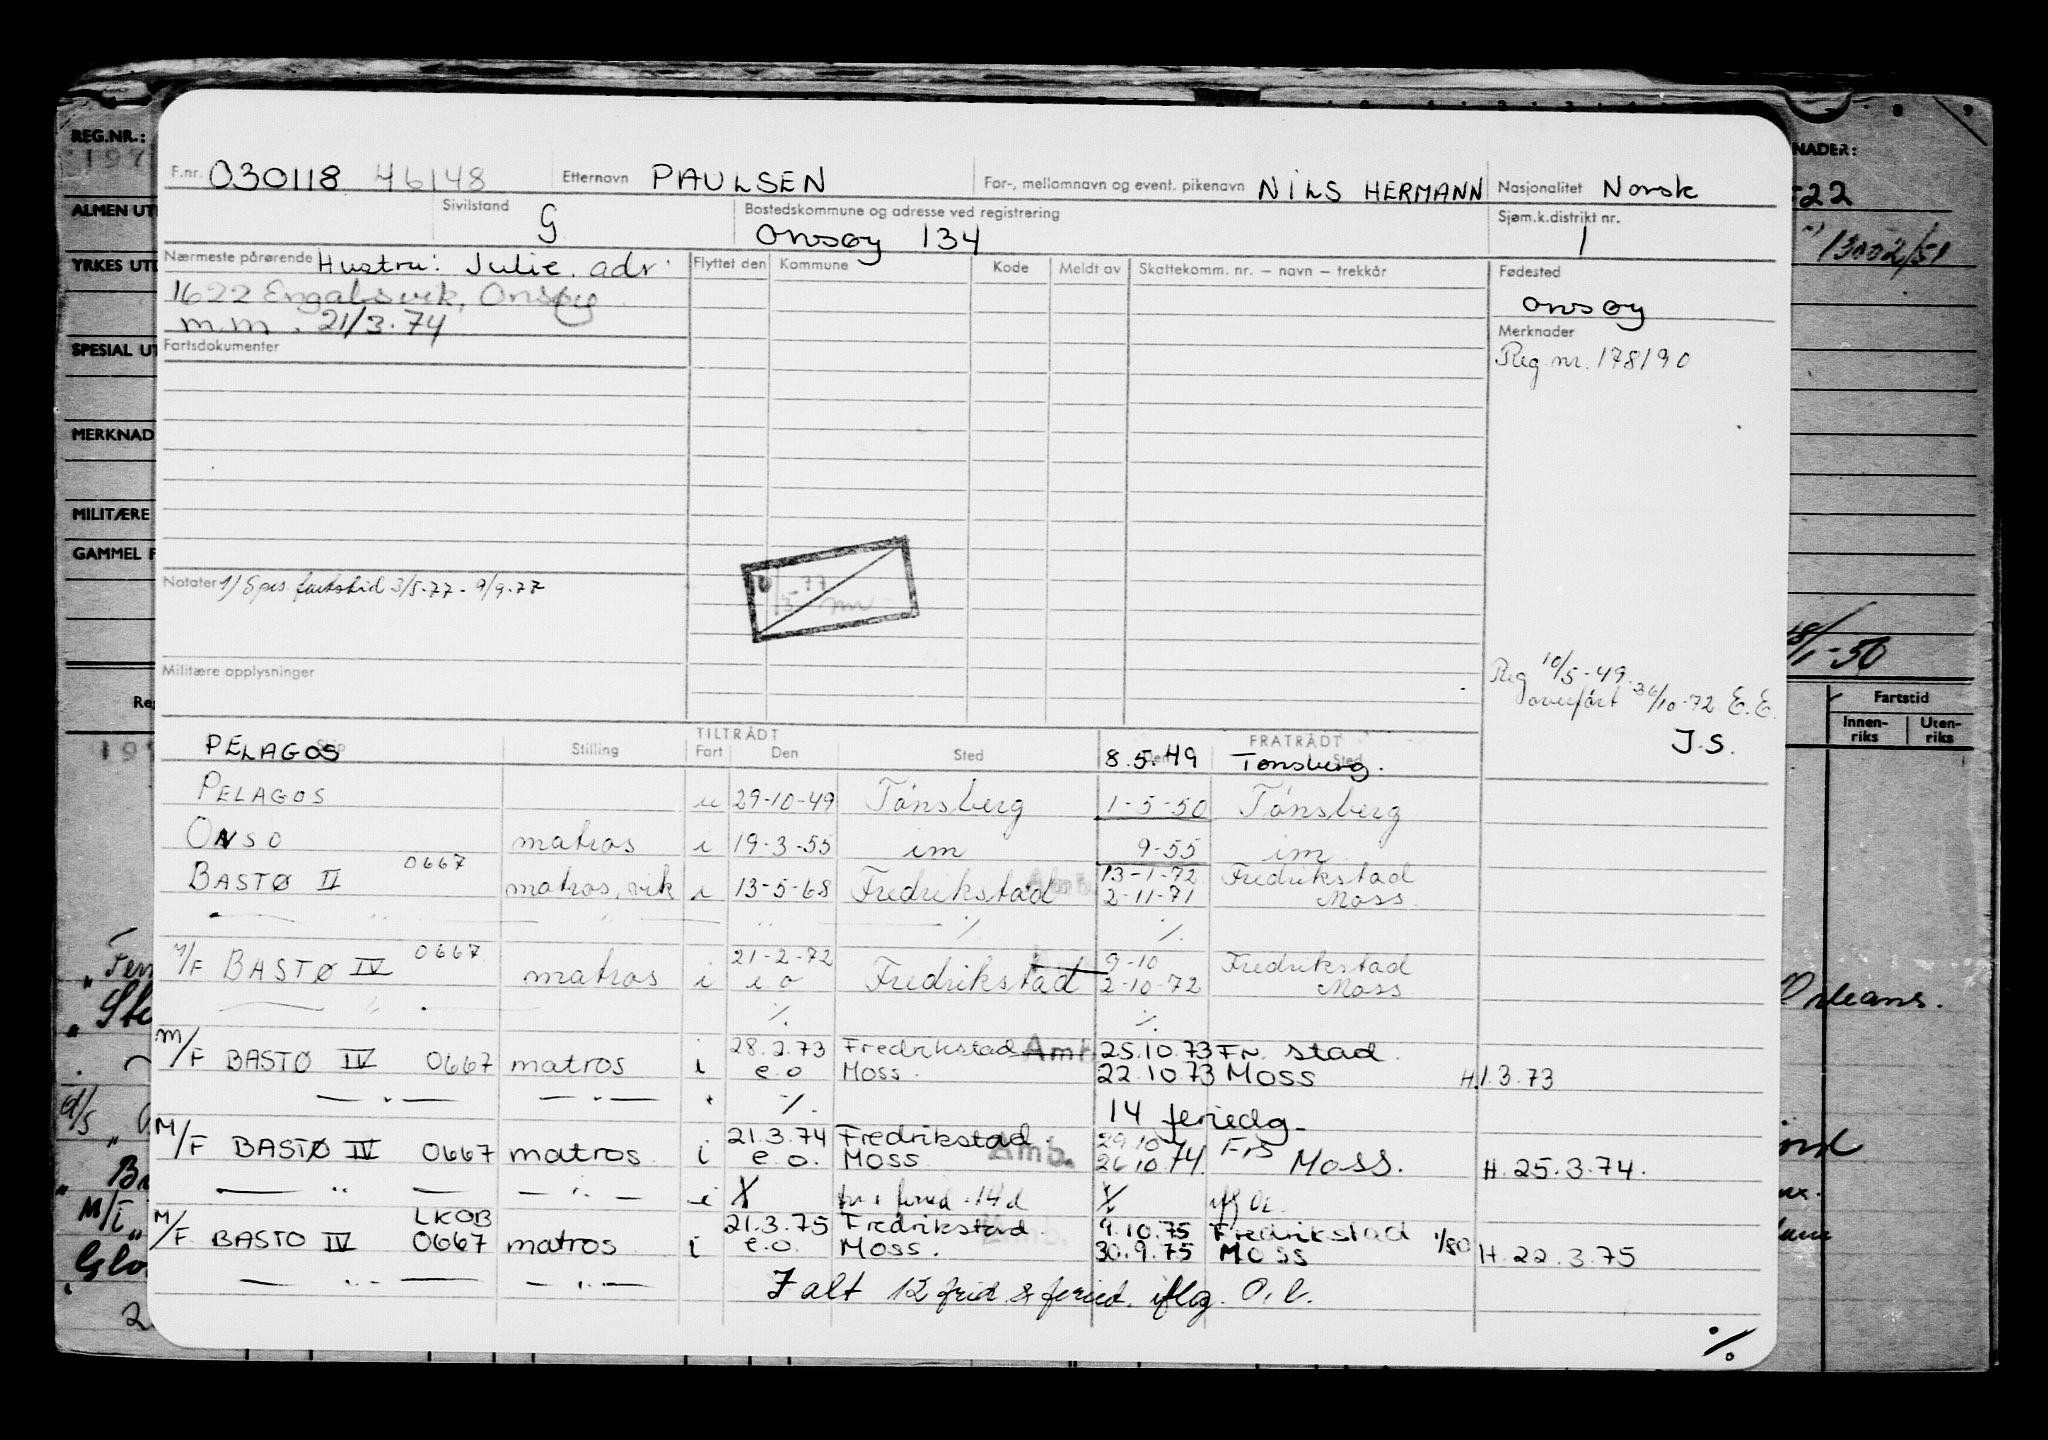 REG.NR.:
F.nr. 030118 46148 Etternavn PAULSEN For-, mellomnavn og event. pikenavn NILS HERMANN Nasjonalitet Norsk
Sivilstand G Bostedskommune og adresse ved registrering Onsøy 134 Sjøm.k.distrikt nr. 1
Nærmeste pårørende Hustru: Julie. adr. Flyttet den Kommune Kode Meldt av Skattekomm. nr. – navn – trekkår Fødested
1622 Engalsvik, Onsøy Onsøy
m.m. 21/3.74 Merknader
Fartsdokumenter Reg nr. 178190
ALMEN UT
YRKES UT
SPESIAL UT
MERKNAD
MILITÆRE
GAMMEL F
NADER:
-22
13002/51
Notater 1) Spes. fartstid 3/5-77 - 9/9-77
-77
Militære opplysninger
Reg 10/5-49
overført 26/10-72 E.E.
J.S.
/1-50
Fartstid
Innen-riks Uten-riks
TILTRÅDT FRATRÅDT
Skip Stilling Fart Den Sted Den Sted
PELAGOS 8.5.49 Tønsberg.
PELAGOS u 29-10-49 Tønsberg 1-5-50 Tønsberg
ONSO matros i 19-3-55 im 9-55 im
BASTØ II 0667 matros, vik i 13-5-68 Fredrikstad Amb. 13-1-72 Fredrikstad
2-11-71 Moss
— " — " " ./. ./.
M/F BASTØ IV 0667 matros i 21-2-72 Fredrikstad 9-10 Fredrikstad
e o 2-10-72 Moss
— " — ./. ./.
M/F BASTØ IV 0667 matros i 28.2.73 Fredrikstad Amb. 25.10.73 Fr. stad
e.o Moss. 22.10.73 Moss H.1.3.73
— " — — " — ./. 14 feriedg
M/F BASTØ IV 0667 matros i 21.3.74 Fredrikstad 29.10 Frs
e.o. Moss Amb. 26.10.74 Moss. H. 25.3.74.
— " — — " — i feried -14 d
M/F BASTO IV LKOB 0667 matros i 21.3.75 Fredrikstad 9.10.75 Fredrikstad 1/80
e.o. Moss. 30.9.75 Moss H. 22.3.75
— " — — " — I alt 12 frid. & feried. iflg. O.l.
./.
Orleans.